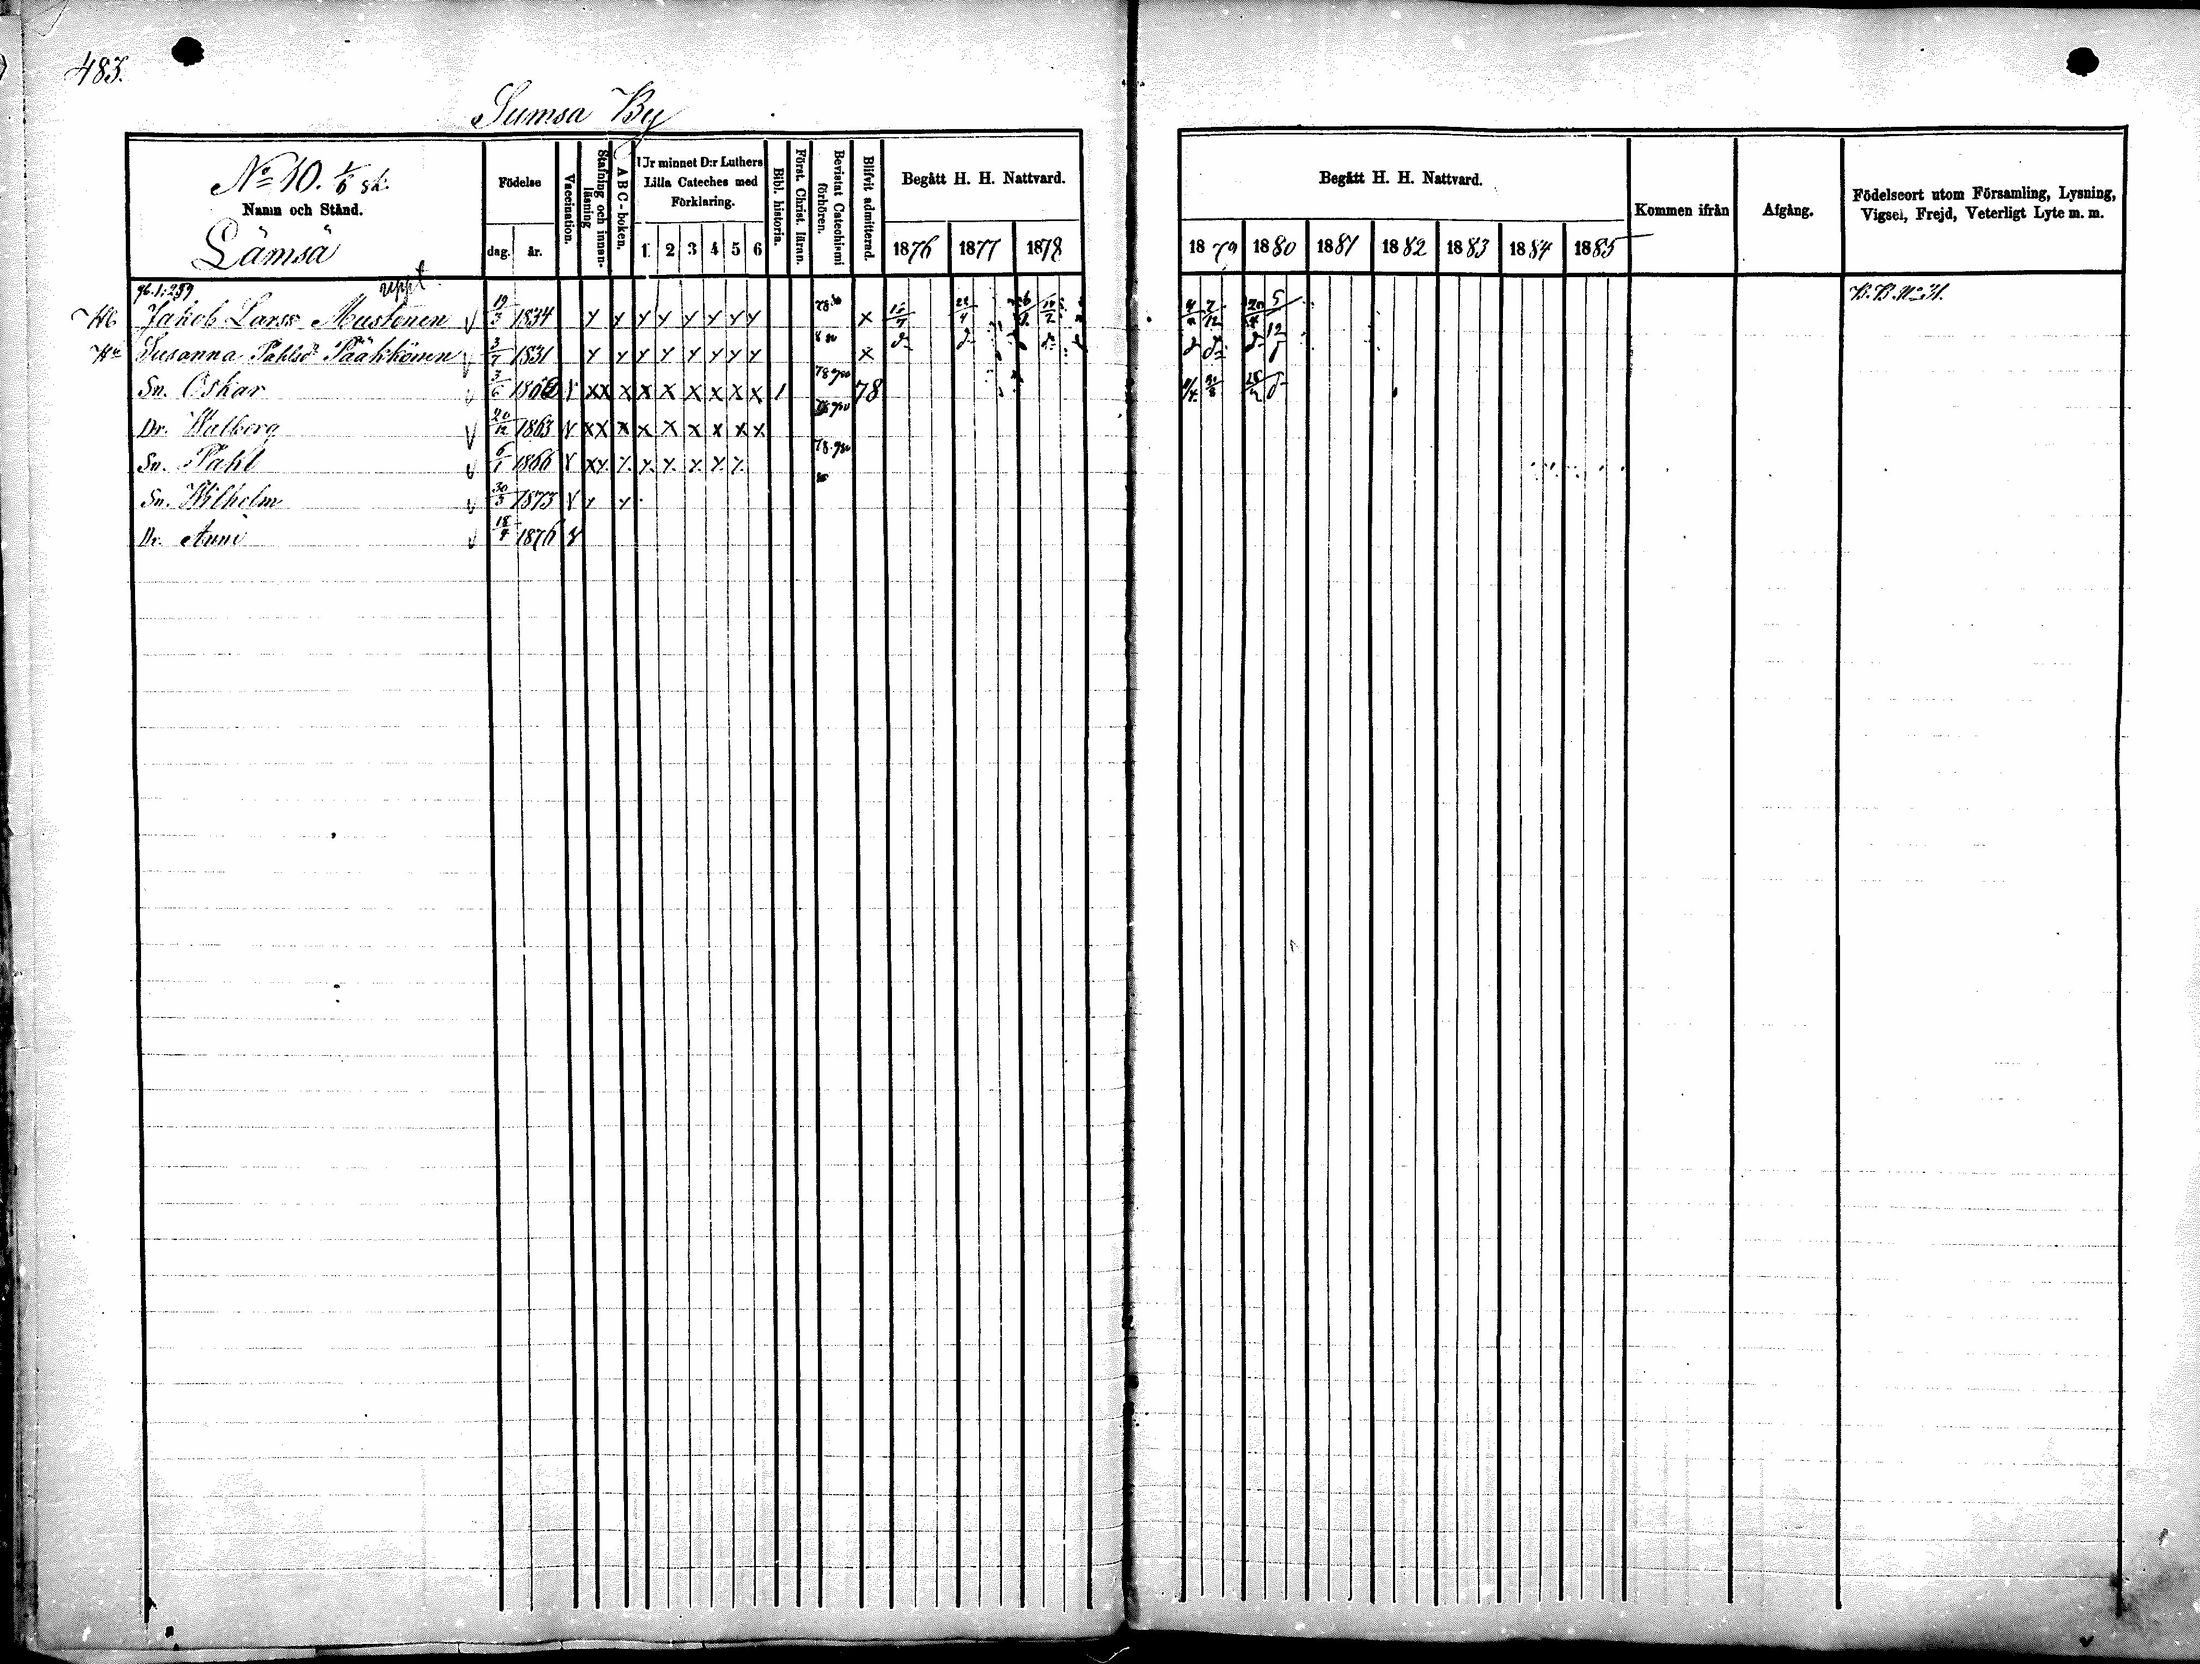 483.
Sumsa By
No 10. 1/6 sk.
Namn och Stånd.
Lämsä
Födelse
dag. år.
Vaccination.
Stafning och innanläsning
ABC-boken.
Ur minnet D:r Luthers Lilla Cateches med Förklaring.
1 2 3 4 5 6
Bibl. historia.
Först. Christ. läran.
Bevistat Catechismi förhören.
Blifvit admitterad.
Begått H. H. Nattvard.
1876 1877 1878
Begått H. H. Nattvard.
1879 1880 1881 1882 1883 1884 1885
Kommen ifrån
Afgång.
Födelseort utom Församling, Lysning, Vigsel, Frejd, Veterligt Lyte m. m.
Jakob Larss Mustonen v 19/3 1834 x x x x x x x x x B.B. No 31.
Susanna Påhlsdr Pääkkönen v 3/7 1831 x x x x x x x x x
Sn. Oskar v 3/6 186 v xx x x x x x x x 1 78
Dr. Walborg v 20/12 1863 v xx x x x x x x x
Sn. Påhl v 6/1 1866 v xx x x x x x x
Sn. Wilhelm v 30/3 1873 v x x
Dr. Anni v 18/4 1876 v